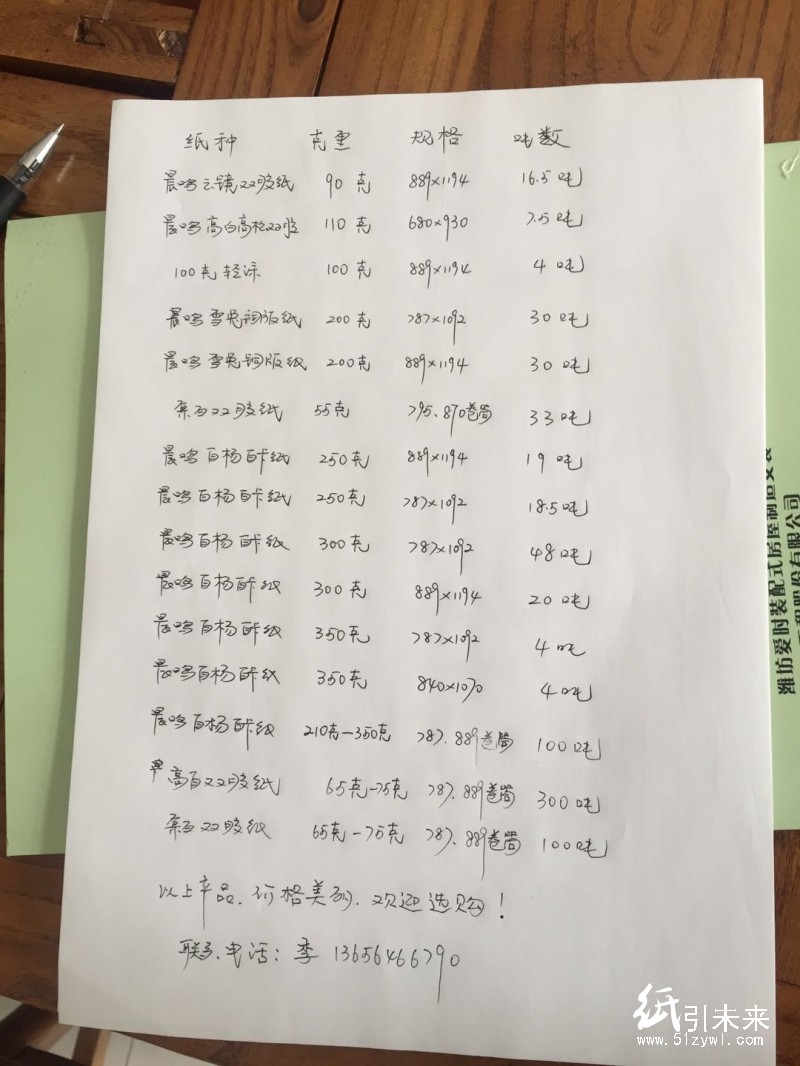 纸种 克重 规格 吨数
晨鸣云镜双胶纸 90克 889×1194 16.5吨
晨鸣高白高松双胶 110克 680×930 7.5吨
100克轻涂 100克 889×1194 4吨
晨鸣雪兔铜版纸 200克 787×1092 30吨
晨鸣雪兔铜版纸 200克 889×1194 30吨
双胶纸 55克 795、890卷筒 33吨
晨鸣白杨白卡纸 250克 889×1194 19吨
晨鸣白杨白卡纸 250克 787×1092 18.5吨
晨鸣白杨白卡纸 300克 787×1092 48吨
晨鸣白杨白卡纸 300克 889×1194 20吨
晨鸣白杨白卡纸 350克 787×1092 4吨
晨鸣白杨白卡纸 350克 840×1070 4吨
晨鸣白杨白卡纸 210克-350克 787、889卷筒 100吨
高白双胶纸 65克-75克 787、889卷筒 300吨
双胶纸 65克-75克 787、889卷筒 100吨
以上产品、价格美丽、欢迎选购！
联系电话：季 13656466790
潍坊爱时装配式房屋制造
股份有限公司
纸引未来
www.51zywl.com